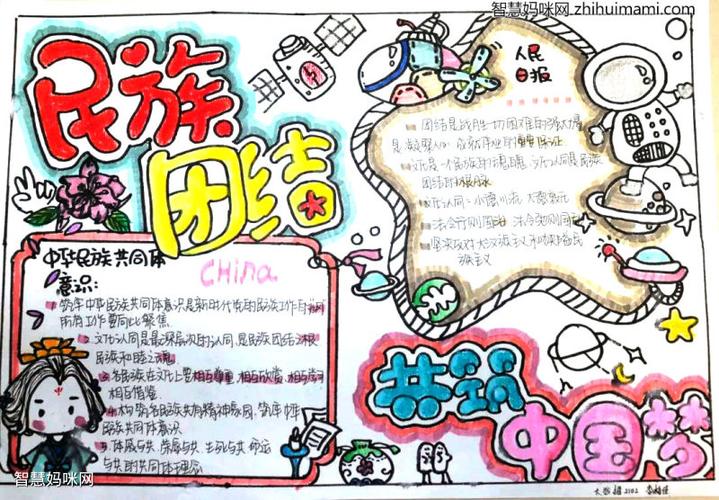 智慧妈咪网.zhihuimami.com
民族
团结
人民
日报
团结是战胜一切困难的强大力量
是凝聚人心、成就伟业的重要保证
文化是一个民族的魂魄 文化认同是民族
团结的根脉
法令行则国治 法令弛则国乱
坚决反对大汉族主义和地方民
族主义
中华民族共同体
意识:
China
1.筑牢中华民族共同体意识是新时代党的民族工作的
所有工作要向此聚焦
2.文化认同是最深层次的认同,是民族团结之根
民族和睦之魂
3.各民族在文化上要相互尊重,相互欣赏,相互学习
相互借鉴
4.构筑各民族共有精神家园,筑牢中华
民族共同体意识
5.休戚与共、荣辱与共、生死与共、命运
与共的共同体理念
共筑
中国梦
智慧妈咪网